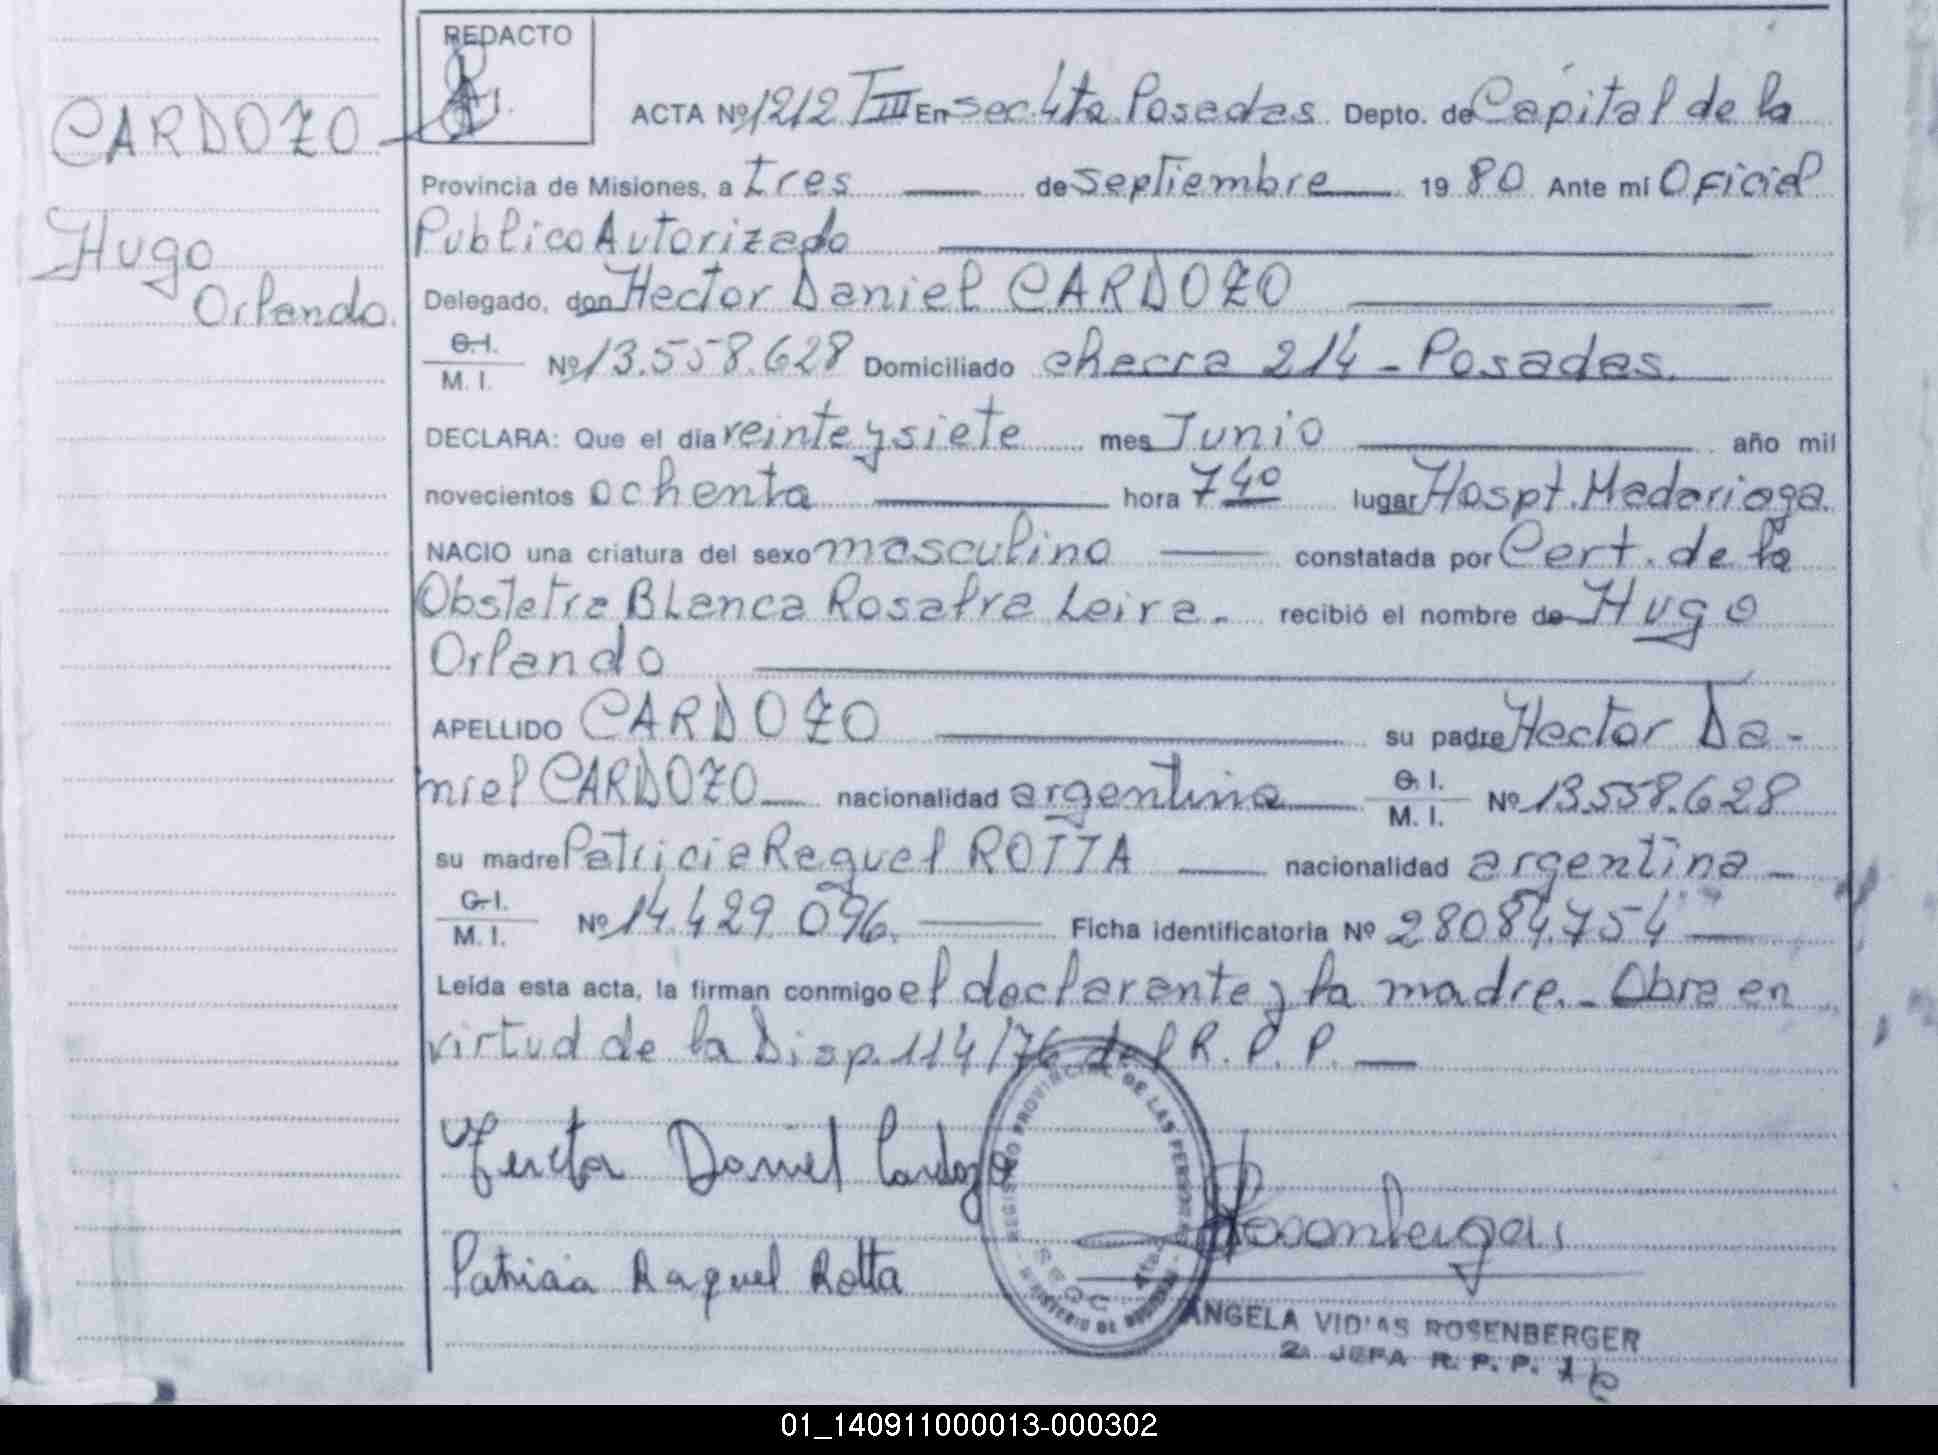 REDACTO
CARDOZO
Hugo
Orlando.
ACTA Nº 1212 T III En Sec. 4ta. Posadas. Depto. de Capital de la
Provincia de Misiones, a tres de septiembre 19 80 Ante mí Oficial
Publico Autorizado
Delegado, don Hector Daniel CARDOZO
C. I.
M. I. Nº 13.558.628 Domiciliado chacra 214 - Posadas.
DECLARA: Que el día veinte y siete mes Junio año mil
novecientos ochenta hora 7 40 lugar Hospt. Madariaga.
NACIO una criatura del sexo masculino constatada por Cert. de la
Obstetra Blanca Rosalra Leira. recibió el nombre de Hugo
Orlando
APELLIDO CARDOZO su padre Hector Da-
niel CARDOZO nacionalidad argentina C. I.
M. I. Nº 13.558.628
su madre Patricia Raquel ROTTA nacionalidad argentina
C. I.
M. I. Nº 14.429.096. Ficha identificatoria Nº 28084.754
Leída esta acta, la firman conmigo el declarante y la madre. - Obra en
virtud de la Disp. 114/76 del R. P. P.
Hector Daniel Cardozo
Patricia Raquel Rotta
REGISTRO PROVINCIAL DE LAS PERSONAS
SECC. 4ta.
MINISTERIO DE GOBIERNO
ANGELA VIDIAS ROSENBERGER
2a JEFA R. P. P.
01_140911000013-000302